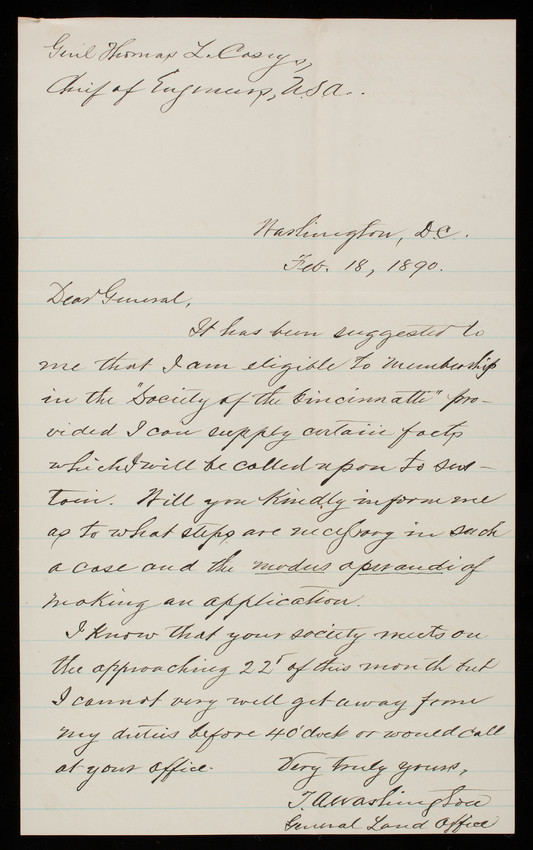 Genl Thomas L. Casey,
Chief of Engineers, U.S.A.
Washington, D.C.
Feb. 18, 1890.
Dear General,
It has been suggested to
me that I am eligible to membership
in the "Society of the Cincinnatti" pro-
vided I can supply certain facts
which I will be called upon to sus-
tain. Will you kindly inform me
as to what steps are necessary in such
a case and the modus operandi of
making an application.
I know that your society meets on
the approaching 22d of this month but
I cannot very well get away from
my duties before 4 O'clock or would call
at your office.
Very truly yours,
T. A. Washington
General Land Office